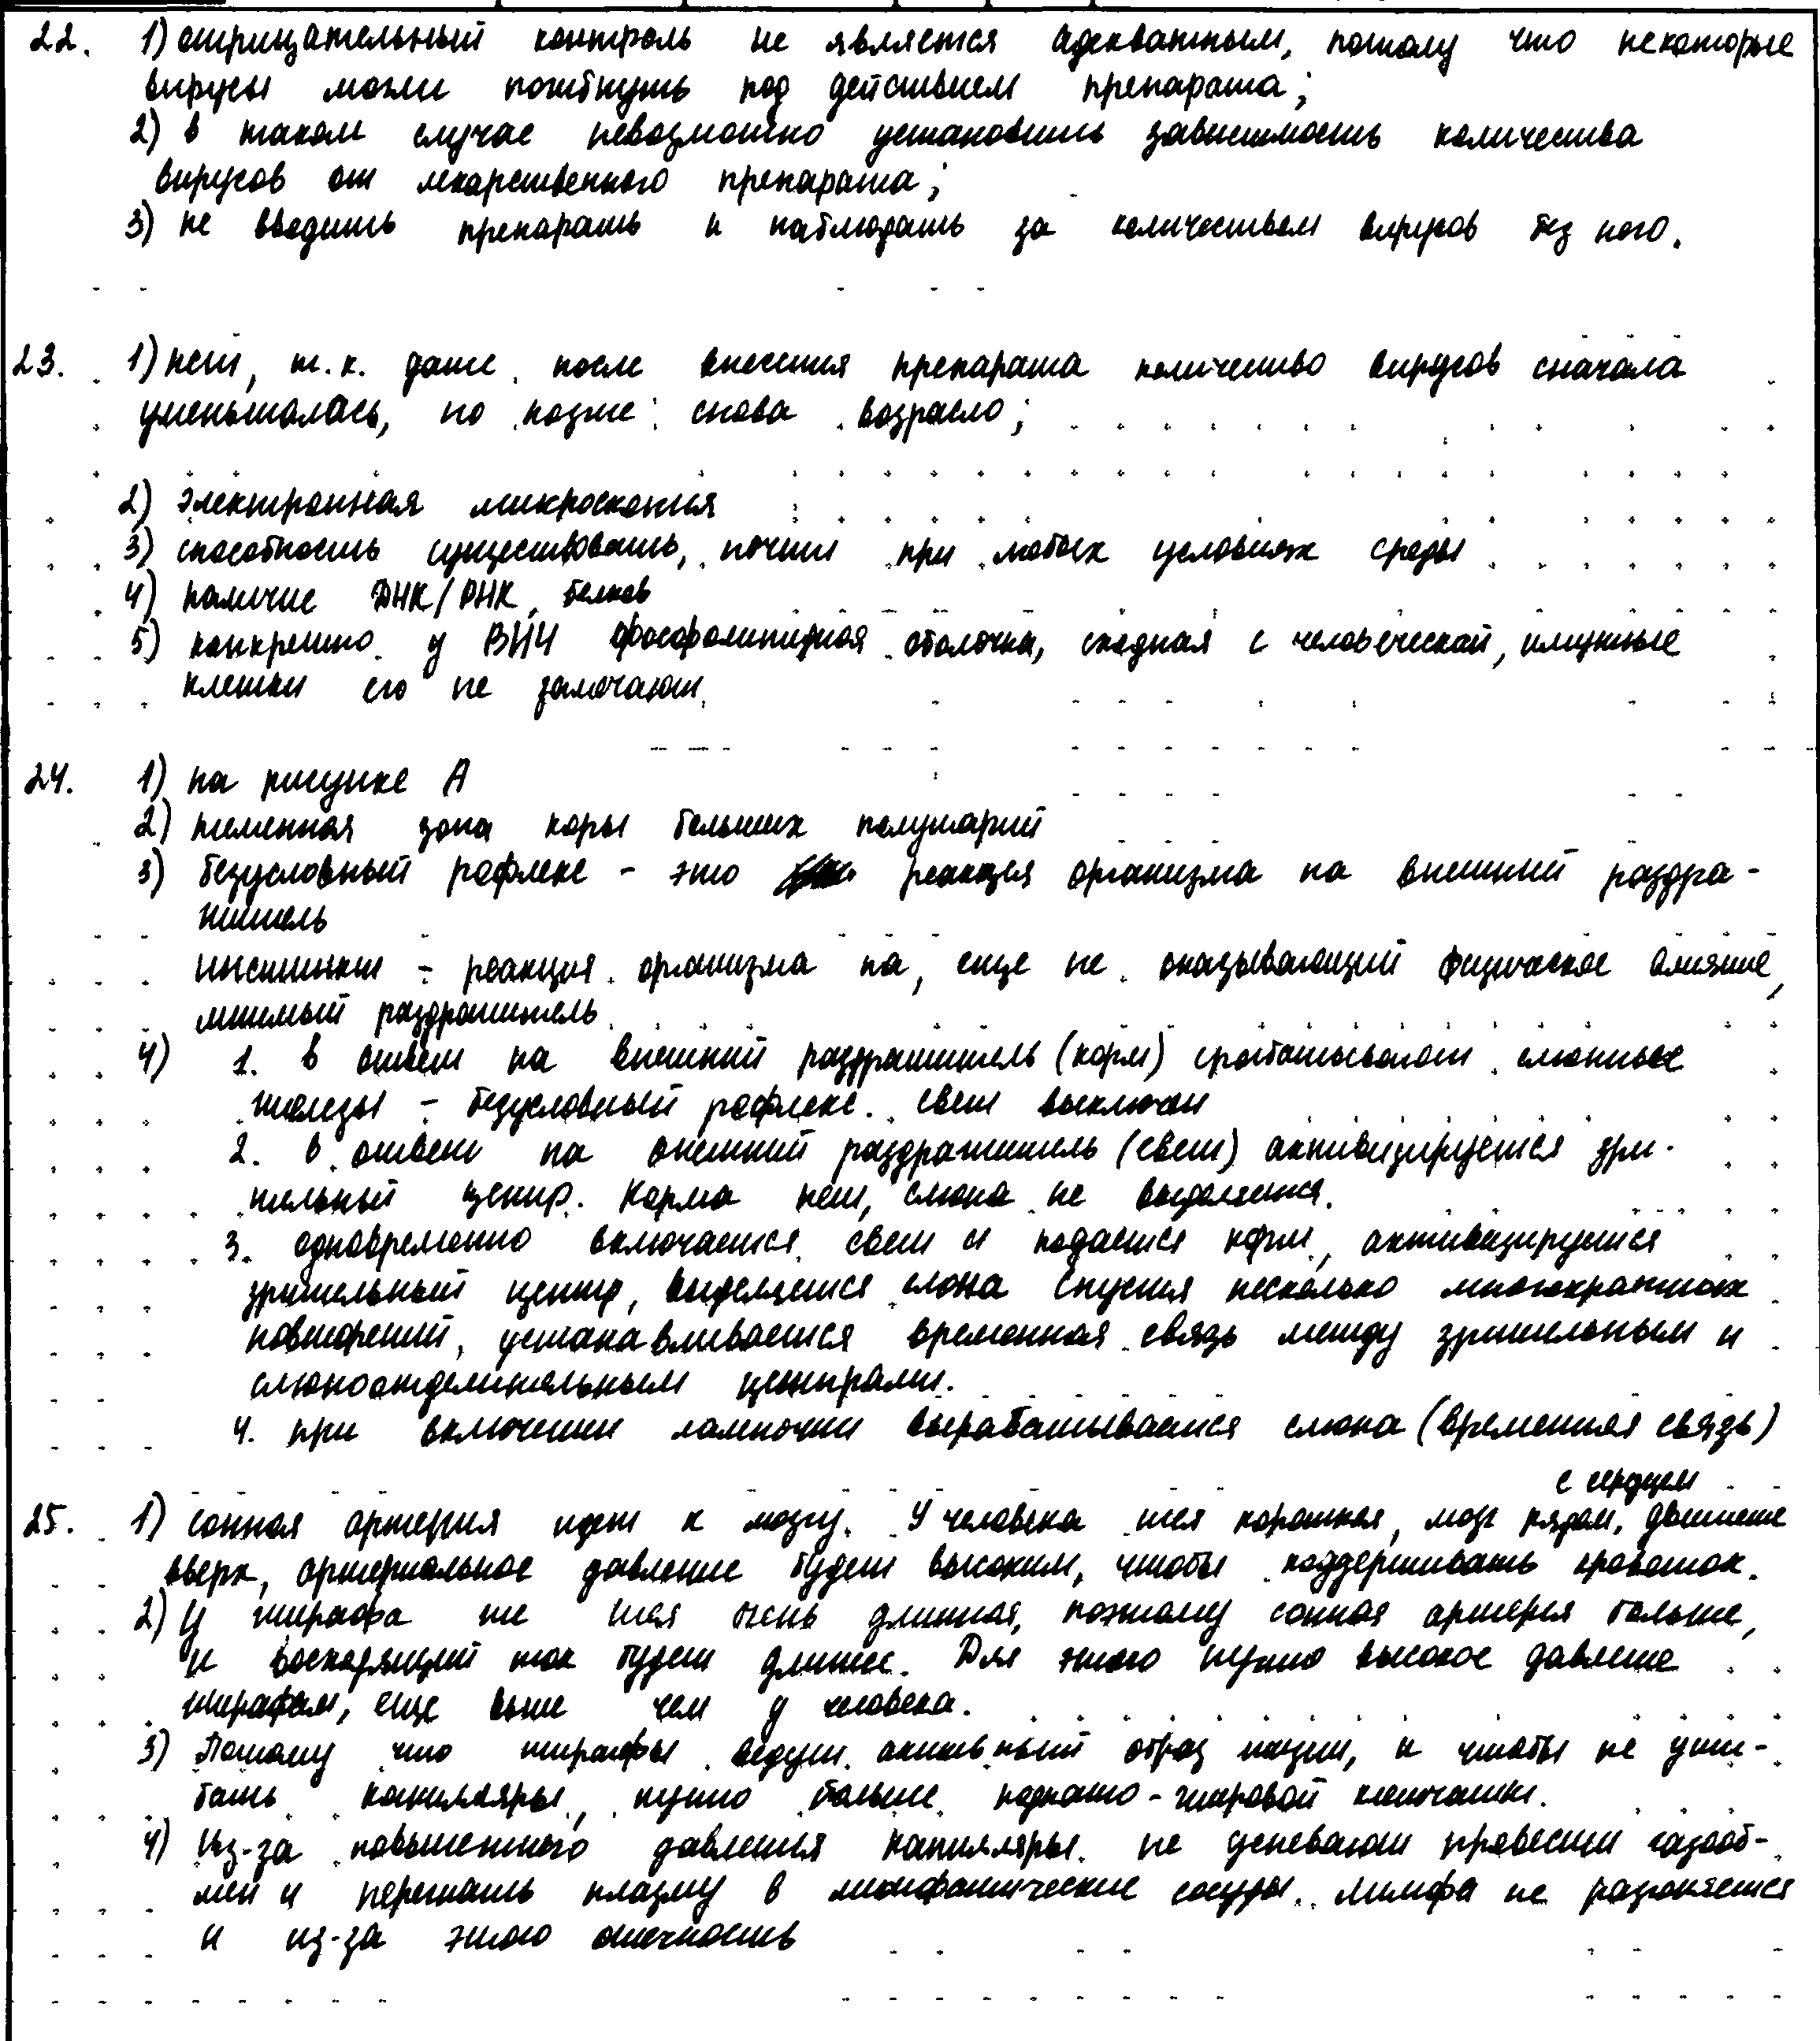 22. 1) отрицательный контроль не является адекватным, потому что некоторые
вирусы могли погибнуть под действием препарата;
2) в таком случае невозможно установить зависимость количества
вирусов от лекарственного препарата;
3) не вводить препарать и наблюдать за количеством вирусов без него.
23. 1) нет, т.к. даже после внесения препарата количество вирусов сначала
уменьшалась, но позже снова возрасло;
2) электронная микроскопия
3) способность существовать, почти при любых условиях среды
4) наличие ДНК/РНК, белков
5) конкретно у ВИЧ фосфолипидная оболочка, сходная с человеческой, имунные
клетки его не замечают.
24. 1) на рисунке А
2) теменная зона коры больших полушарий
3) безусловный рефлекс - это реакция организма на внешний раздра-
житель
инстинкт - реакция организма на, еще не оказывающий физическое влияние,
мнимый раздражитель
4) 1. в ответ на внешний раздражитель (корм) срабатывают слюнные
железы - безусловный рефлекс. свет выключен
2. в ответ на внешний раздражитель (свет) активизируется зри-
тельный центр. Корма нет, слюна не выделяется.
3. одновременно включается свет и подается корм, активизируется
зрительный центр, выделяется слюна спустя несколько многократных
повторений, устанавливается временная связь между зрительным и
слюноотделительным центрами.
4. при включении лампочки вырабатывается слюна (временная связь)
с сердцем
25. 1) сонная артерия идет к мозгу. У человека шея короткая, мозг рядом, движение
вверх, артериальное давление будет высоким, чтобы поддерживать кровоток.
2) У жирафа же шея очень длинная, поэтому сонная артерия больше,
и восходящий ток будет длинее. Для этого нужно высокое давление
жирафам, еще выше чем у человека.
3) Потому что жирафы ведут активный образ жизни, и чтобы не уши-
бать капилляры, нужно больше подкожно-жировой клетчатки.
4) Из-за повышенного давления капилляры не успевают провести газооб-
мен и перегнать плазму в лимфатические сосуды. Лимфа не разгоняется
и из-за этого отечность